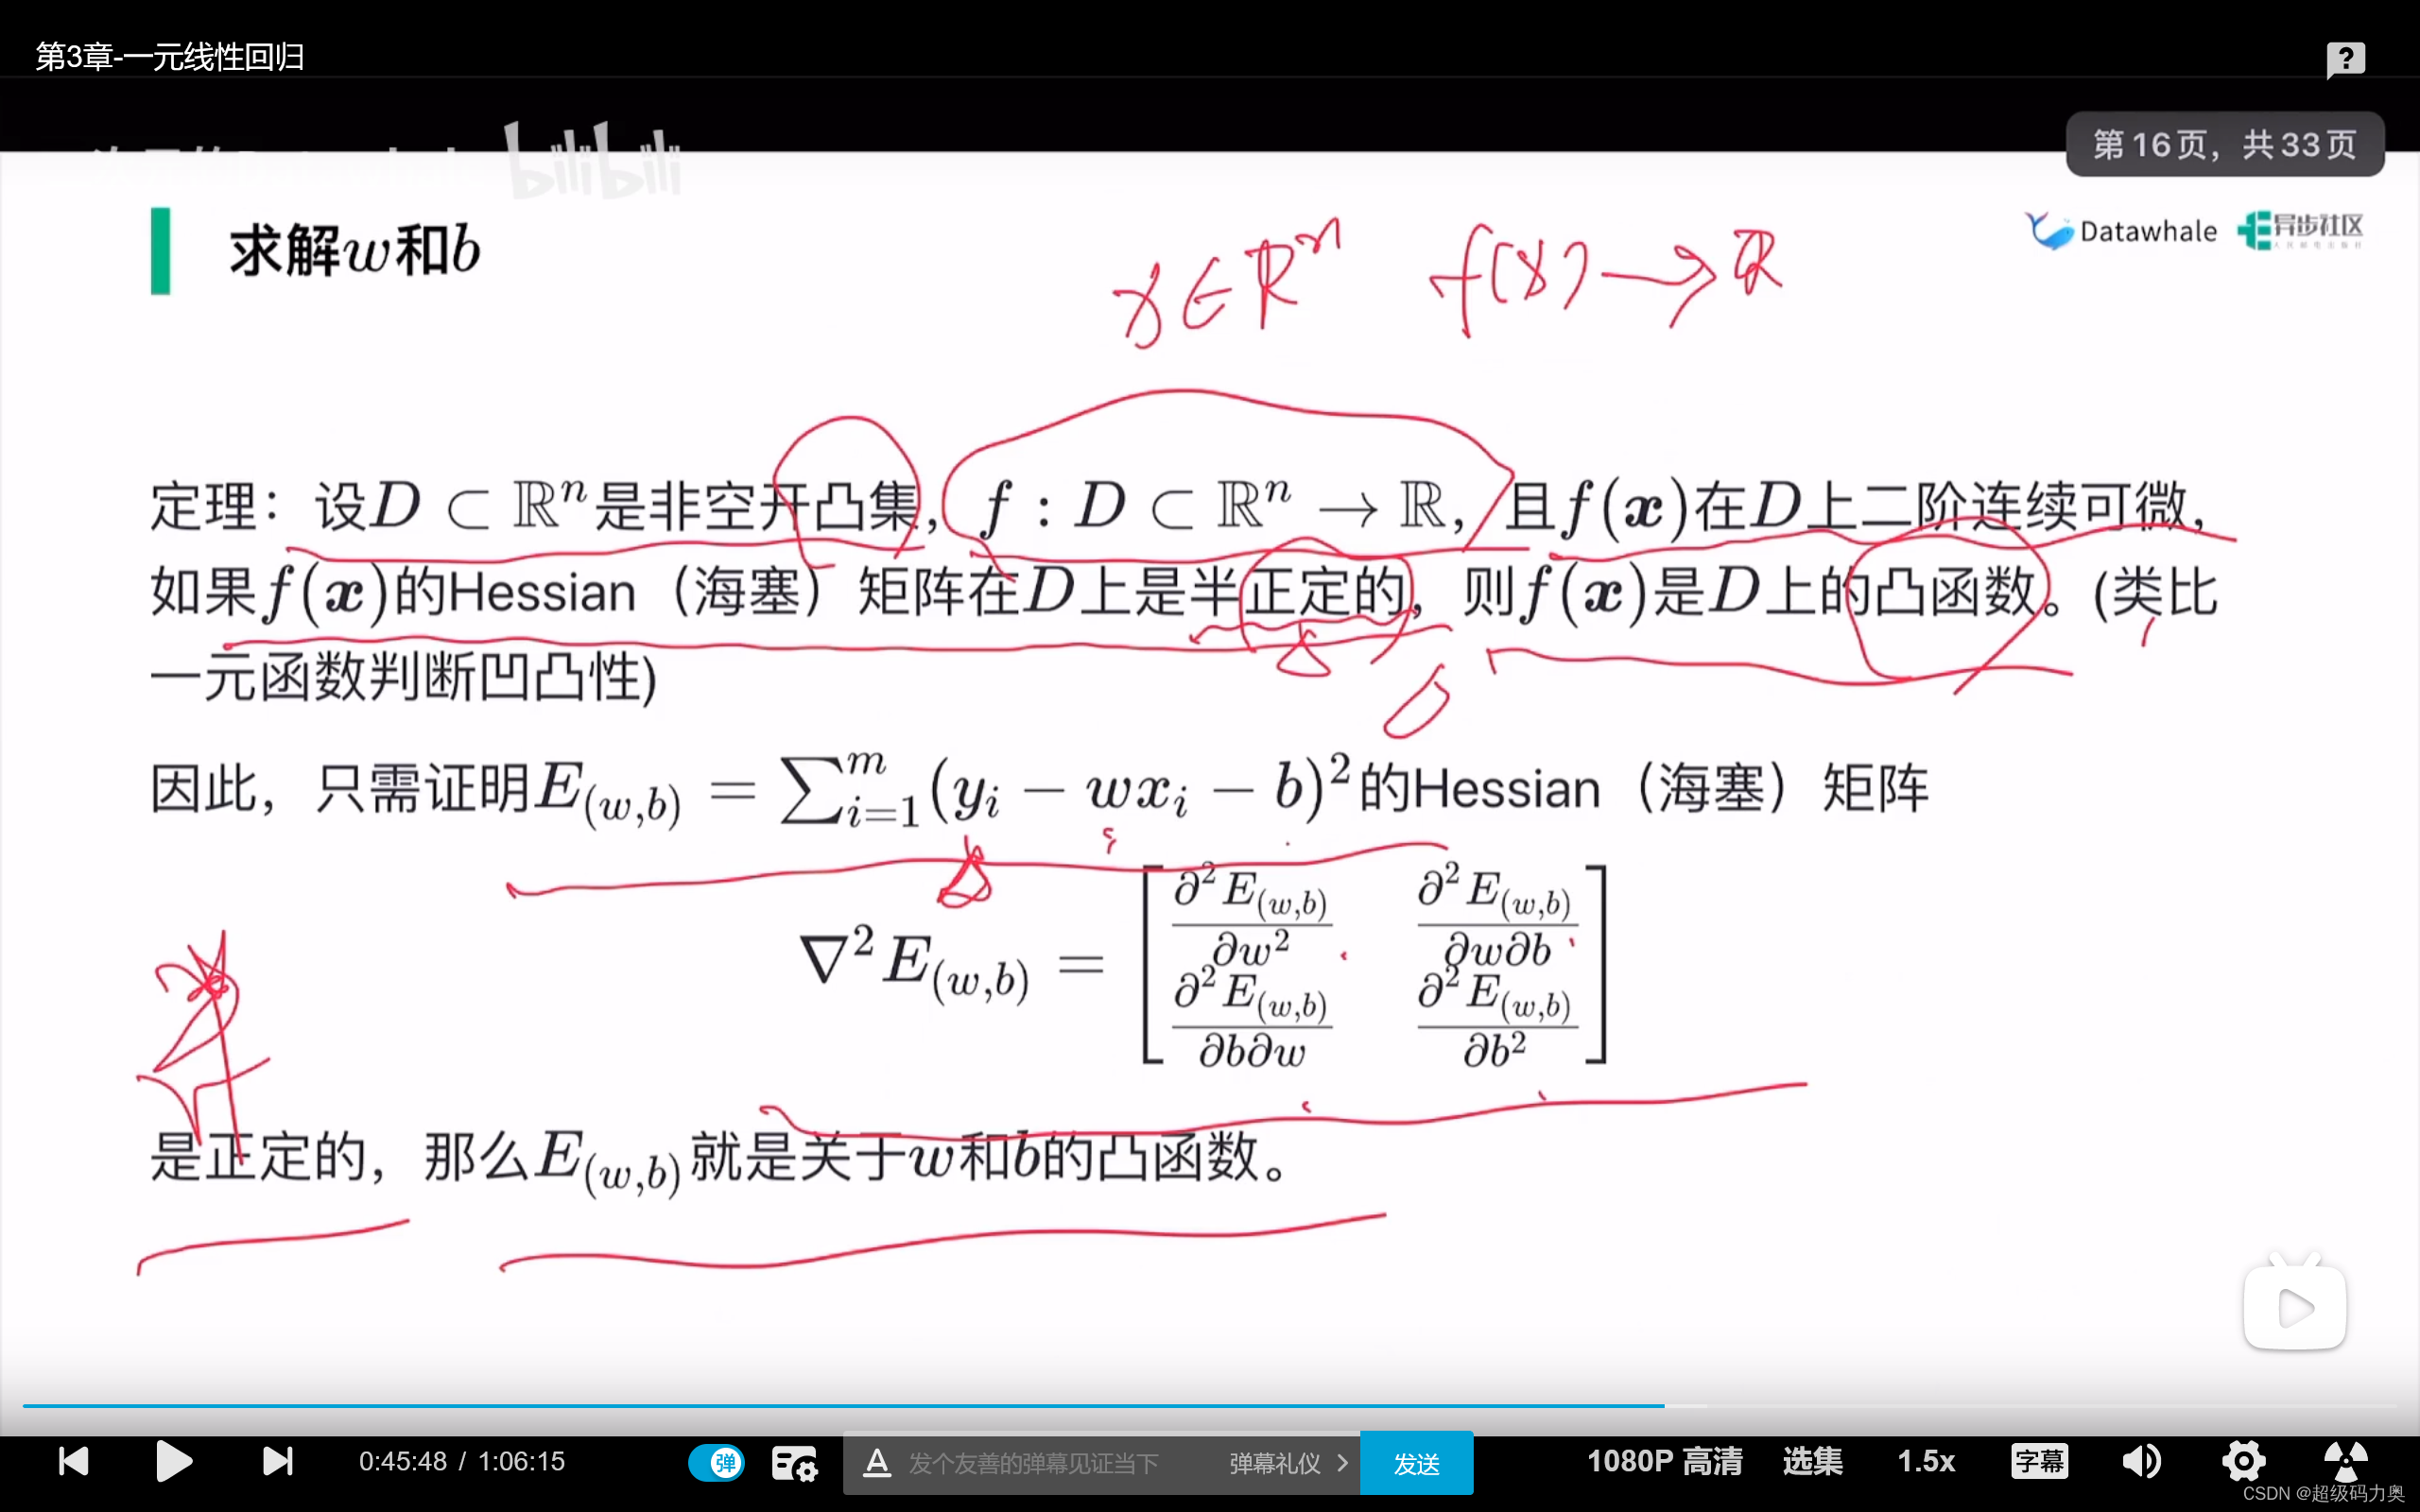 第3章-一元线性回归
?
bilibili
第16页，共33页
求解w和b
x∈ℝⁿ f(x)→ℝ
Datawhale 异步社区
定理：设D ⊂ ℝⁿ是非空开凸集，f : D ⊂ ℝⁿ → ℝ，且f(x)在D上二阶连续可微，
如果f(x)的Hessian（海塞）矩阵在D上是半正定的，则f(x)是D上的凸函数。(类比
一元函数判断凹凸性)
因此，只需证明E_(w,b) = ∑_{i=1}^{m}(y_i − wx_i − b)²的Hessian（海塞）矩阵
∇²E_(w,b) = [ ∂²E_(w,b)/∂w² ∂²E_(w,b)/∂w∂b
∂²E_(w,b)/∂b∂w ∂²E_(w,b)/∂b² ]
是正定的，那么E_(w,b)就是关于w和b的凸函数。
0:45:48 / 1:06:15 弹 A 发个友善的弹幕见证当下 弹幕礼仪 > 发送 1080P 高清 选集 1.5x 字幕
CSDN @超级码力奥